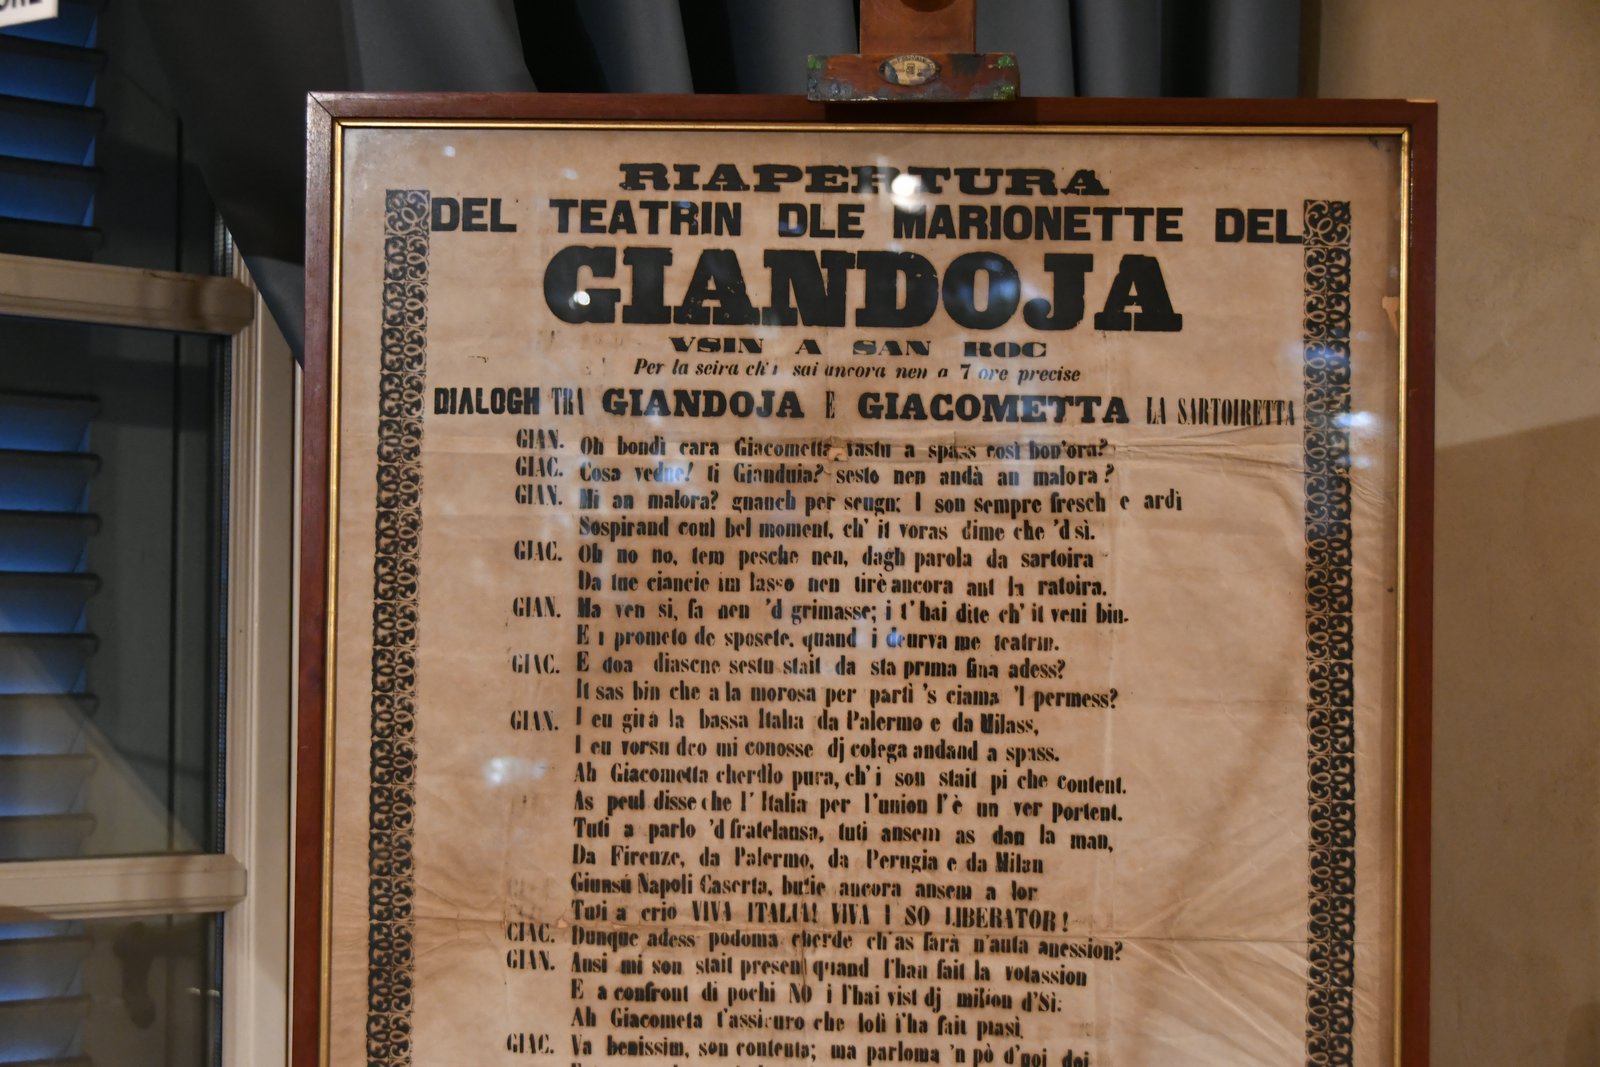 RIAPERTURA
DEL TEATRIN DLE MARIONETTE DEL
GIANDOJA
VSIN A SAN ROC
Per la seira ch'i sai ancora nen a 7 ore precise
DIALOGH TRA GIANDOJA E GIACOMETTA LA SARTOIRETTA
GIAN. Oh bondì cara Giacometta vastu a spass così bon'ora?
GIAC. Cosa vedne! ti Gianduia? sesto nen andà an malora?
GIAN. Mi an malora? gnanch per seugn; I son sempre fresch e ardì
Sospirand coul bel moment, ch' it voras dime che 'd sì.
GIAC. Oh no no, tem pesche nen, dagh parola da sartoira
Da tue ciancie im lasso nen tirè ancora ant la ratoira.
GIAN. Ma ven si, fa nen 'd grimasse; i t' hai dite ch' it veni bin.
E i prometo de sposete, quand i deurva me teatrin.
GIAC. E doa diascne sestu stait da sta prima fina adess?
It sas bin che a la morosa per partì 's ciama 'l permess?
GIAN. I eu girà la bassa Italia da Palermo e da Milass,
I eu vorsu dco mi conosse dj colega andand a spass.
Ah Giacometta cherdlo pura, ch' i son stait pi che content.
As peul disse che l' Italia per l'union l' è un ver portent.
Tuti a parlo 'd fratelansa, tuti ansem as dan la man,
Da Firenze, da Palermo, da Perugia e da Milan
Giunsù Napoli Caserta, butie ancora ansem a lor
Tuti a crio VIVA ITALIA! VIVA I SO LIBERATOR!
CIAC. Dunque adess podoma cherde ch'as farà n'auta anession?
GIAN. Ansi mi son stait presen quand l'han fait la votassion
E a confront di pochi NO i l'hai vist dj milion d'Sì:
Ah Giacometa t'assicuro che lolì i'ha fait piasì.
GIAC. Va benissim, son contenta; ma parloma 'n pò d'noi doi